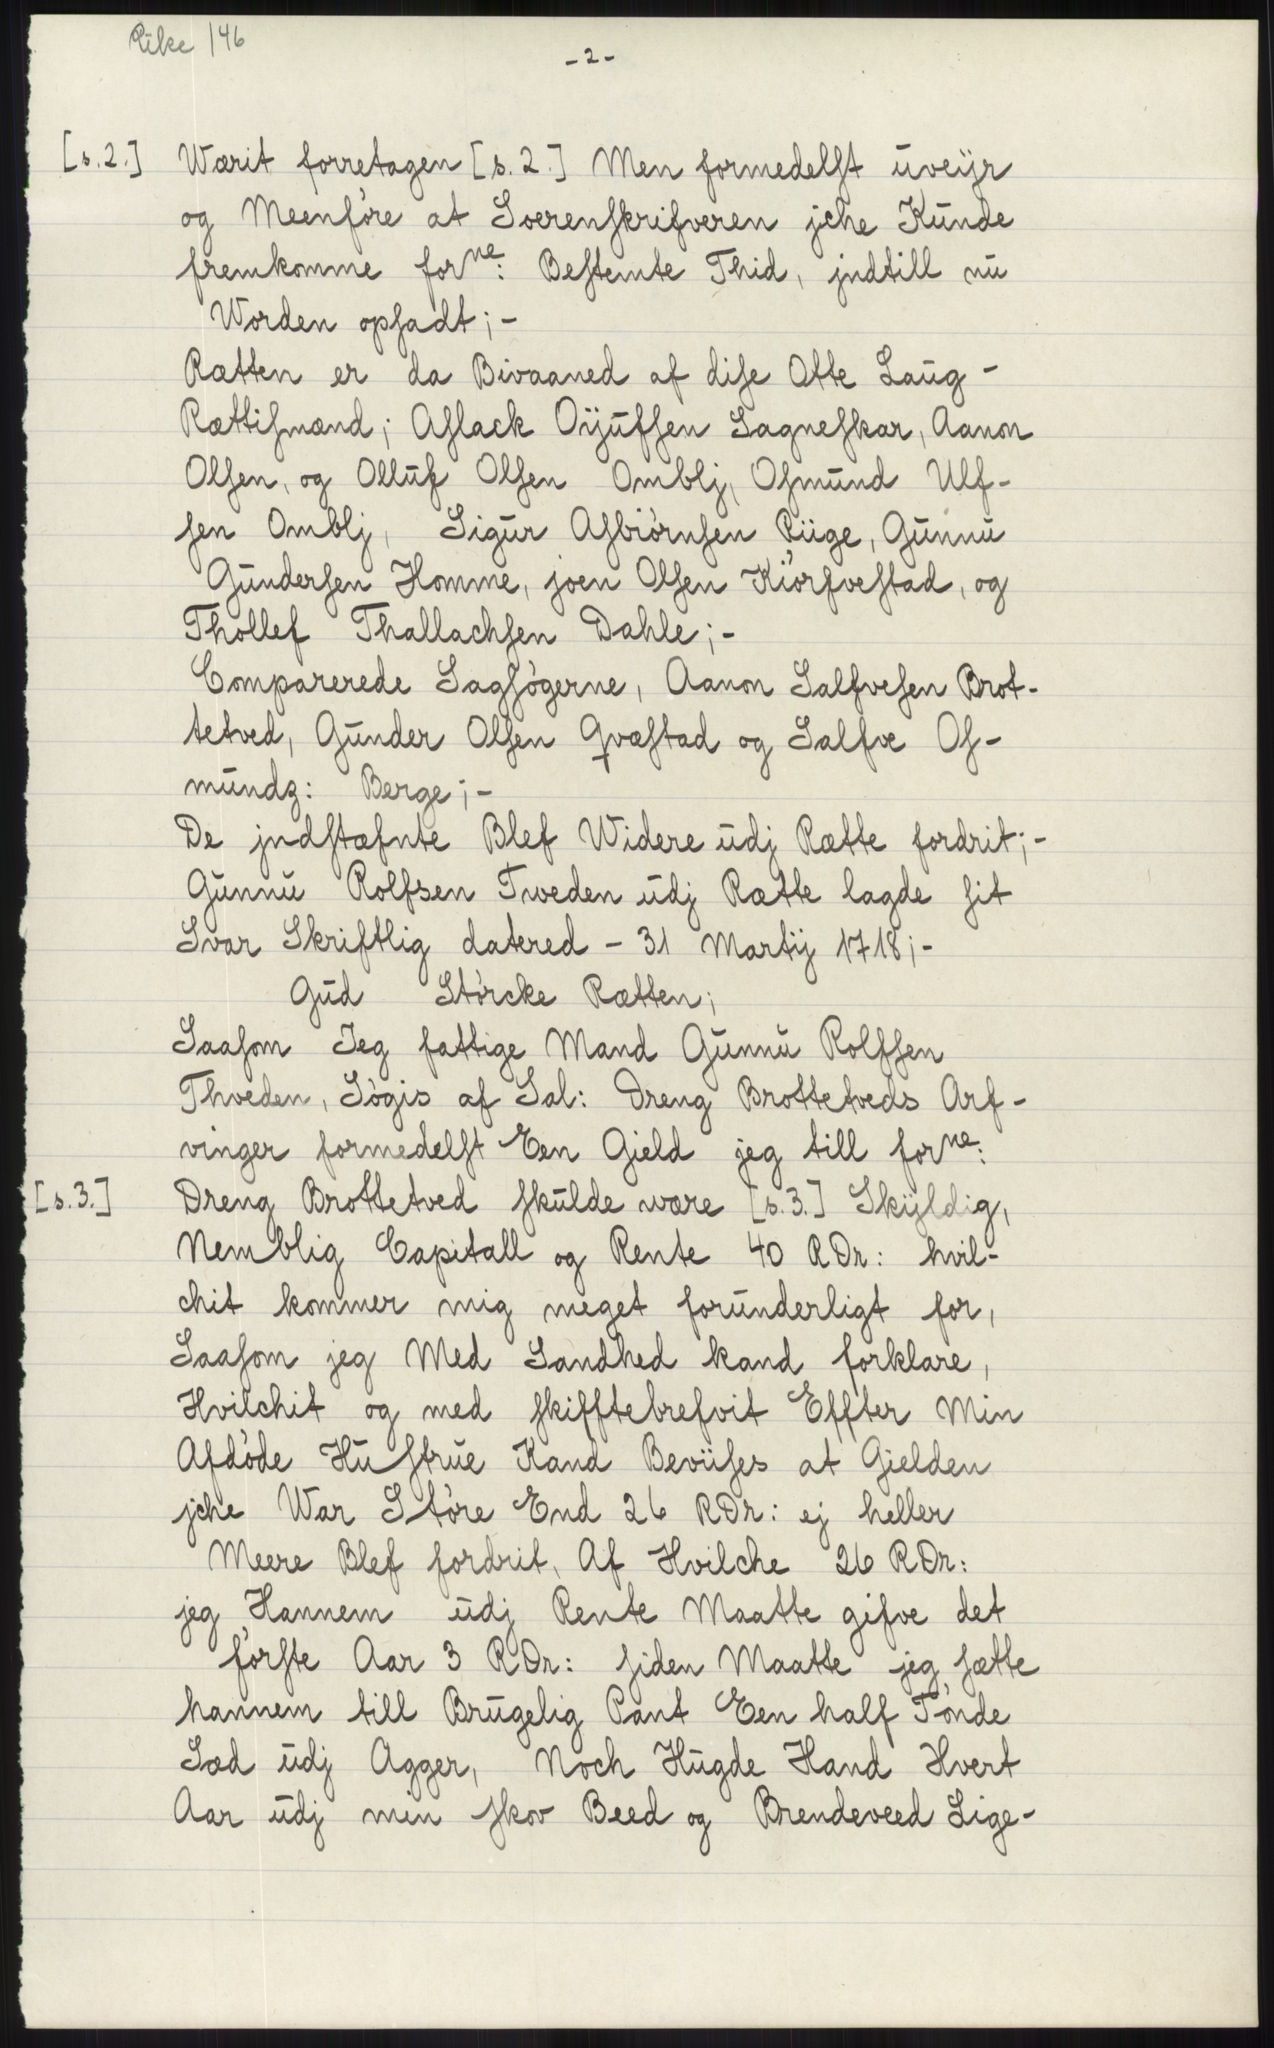 Rike 146
- 2 -
[s.2.] Wærit forretagen [s.2.] Men formedelst uveÿr
og Meenføre at Sorenskrifveren jche Kunde
fremkomme forne: Bestemte Thid, jndtill nu
Worden opsadt; -
Rætten er da Bivaaned af dise Otte Laug-
Rættismænd; Aslack Oÿufsen Sagneskar, Aanon
Olsen, og Olluf Olsen Omblj, Osmund Ulf-
sen Omblj, Sigur Asbiørnsen Riige, Gunnu
Gundersen Homme, joen Olsen Kiørfvestad, og
Thollef Thallachsen Dahle; -
Comparerede Sagsøgerne, Aanon Salfvesen Brot-
tetved, Gunder Olsen Qvæstad og Salfve Os-
mundz: Berge; -
De jndstæfnte Blef Widere udj Rætte fordrit; -
Gunnu Rolfsen Tweden udj Rætte lagde sit
Svar Skriftlig datered - 31 Martij 1718; -
Gud Størcke Rætten;
Saasom Jeg fattige Mand Gunnu Rolfsen
Thveden, Søgis af Sal: Dreng Brottetveds Arf-
vinger formedelst Een Gield jeg till forne:
[s.3.] Dreng Brottetved skulde være [s.3.] Skÿldig,
Nemblig Capitall og Rente 40 RDr: hvil-
chit kommer mig meget forunderligt for,
Saasom jeg Med Sandhed kand forklare,
Hvilchit og med skifftebrefvit Effter Min
Afdøde Hustrue Kand Beviises at Gielden
jche War Støre End 26 RDr: ej heller
Meere Blef fordrit, Af Hvilche 26 RDr:
jeg Hannem udj Rente Maatte gifve det
første Aar 3 RDr: siden Maatte jeg sætte
hannem till Brugelig Pant Een half Tønde
Sæd udj Agger, Noch Hugde Hand Hvert
Aar udj min skov Beed og Brendeveed Lige-